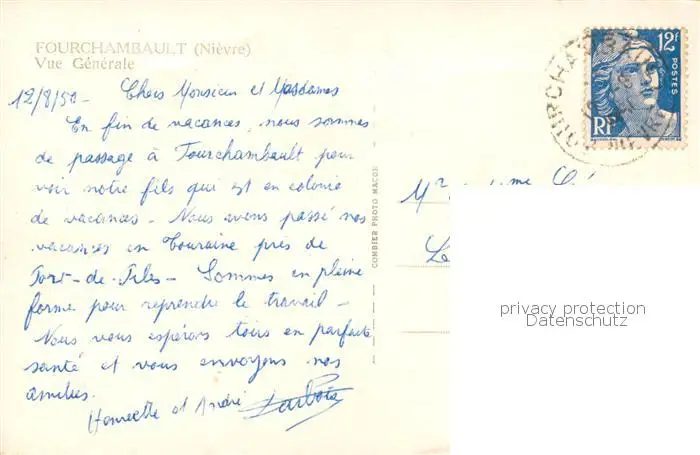 FOURCHAMBAULT (Nièvre)
Vue Générale
12/8/50 - Chers Monsieur et Mesdames
En fin de vacances, nous sommes
de passage à Fourchambault pour
voir notre fils qui est en colonie
de vacances - Nous avons passé nos
vacances en Touraine près de
Port-de-Piles - Sommes en pleine
forme pour reprendre le travail -
Nous vous espérons tous en parfaite
santé et vous envoyons nos
amitiés.
Henriette et André
COMBIER PHOTO MACON
12F
POSTES
RF
Mr
privacy protection
Datenschutz